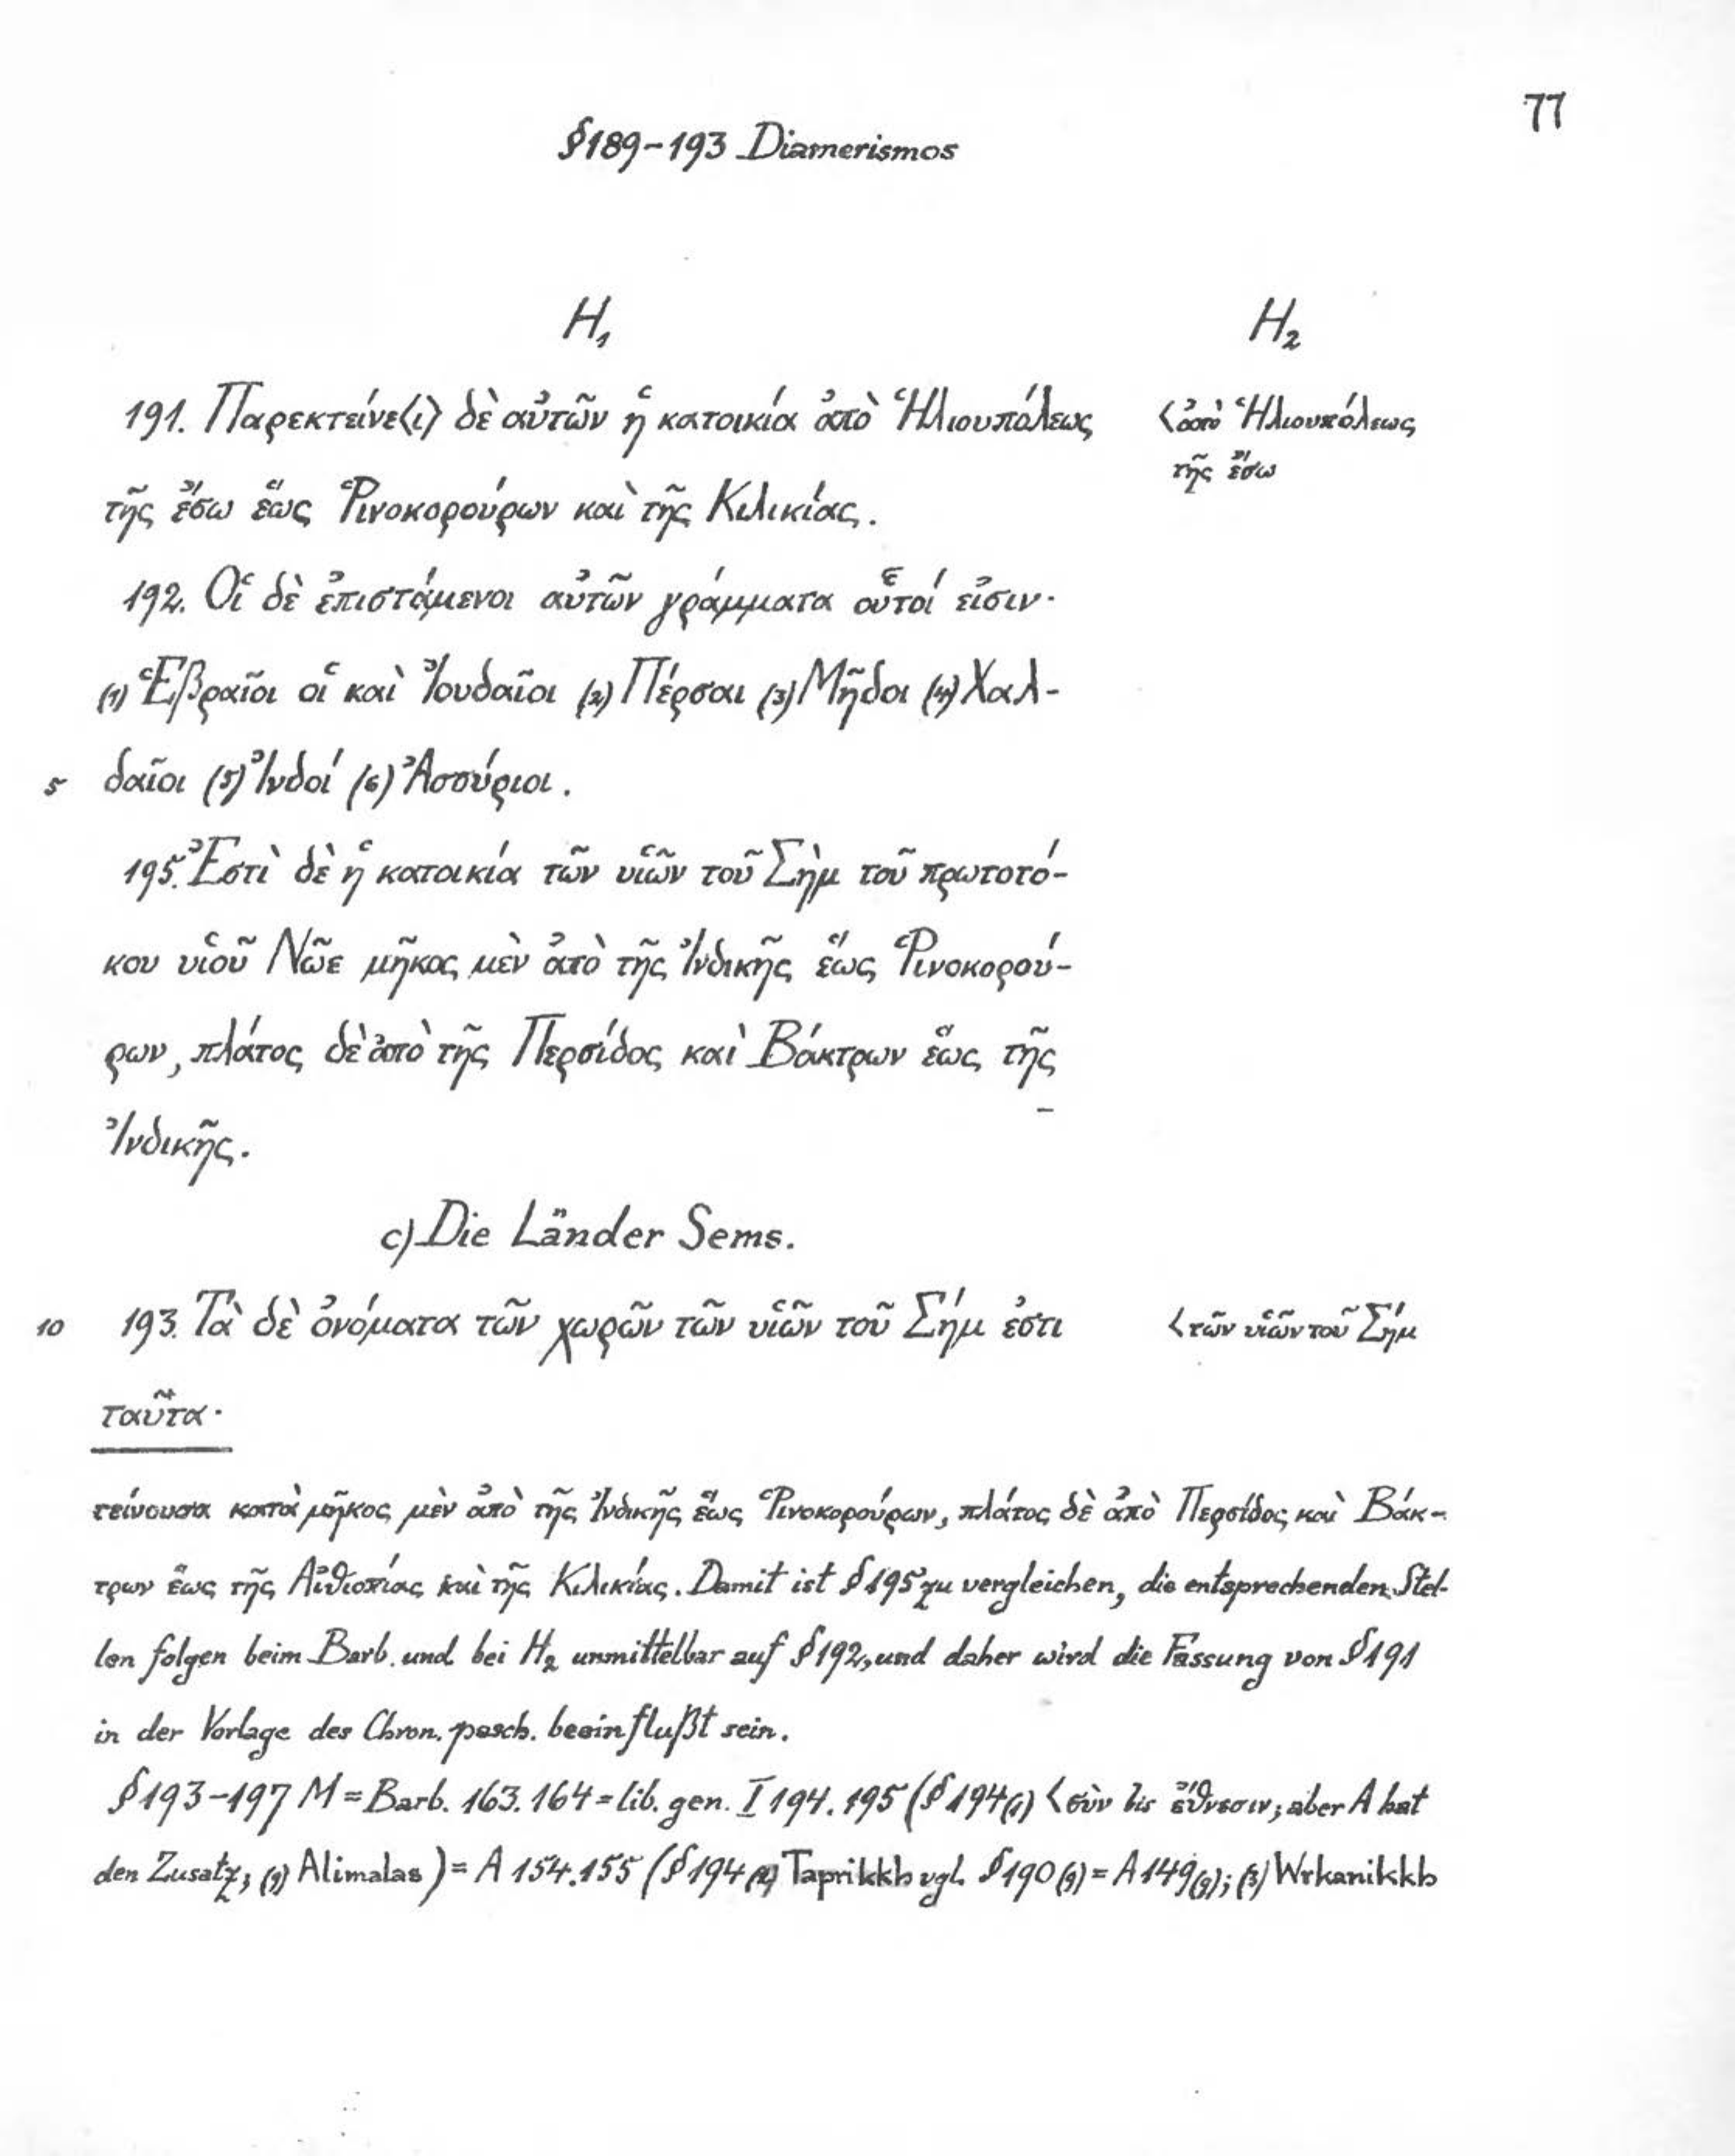 77
§189-193 Diamerismos
H₁
H₂
191. Παρεκτείνε⟨ι⟩ δὲ αὐτῶν ἡ κατοικία ἀπὸ Ἡλιουπόλεως
< ἀπὸ Ἡλιουπόλεως
τῆς ἔσω
τῆς ἔσω ἕως Ῥινοκορούρων καὶ τῆς Κιλικίας.
192. Οἱ δὲ ἐπιστάμενοι αὐτῶν γράμματα οὗτοί εἰσιν·
(1) Ἑβραῖοι οἱ καὶ Ἰουδαῖοι (2) Πέρσαι (3) Μῆδοι (4) Χαλ-
5 δαῖοι (5) Ἰνδοί (6) Ἀσσύριοι.
195. Ἐστὶ δὲ ἡ κατοικία τῶν υἱῶν τοῦ Σὴμ τοῦ πρωτοτό-
κου υἱοῦ Νῶε μῆκος μὲν ἀπὸ τῆς Ἰνδικῆς ἕως Ῥινοκορού-
ρων, πλάτος δὲ ἀπὸ τῆς Περσίδος καὶ Βάκτρων ἕως τῆς
Ἰνδικῆς.
c) Die Länder Sems.
10 193. Τὰ δὲ ὀνόματα τῶν χωρῶν τῶν υἱῶν τοῦ Σήμ ἐστι
< τῶν υἱῶν τοῦ Σήμ
ταῦτα·
τείνουσα κατὰ μῆκος μὲν ἀπὸ τῆς Ἰνδικῆς ἕως Ῥινοκορούρων, πλάτος δὲ ἀπὸ Περσίδος καὶ Βάκ-
τρων ἕως τῆς Αἰθιοπίας καὶ τῆς Κιλικίας. Damit ist §195 zu vergleichen, die entsprechenden Stel-
len folgen beim Barb. und bei H₂ unmittelbar auf §192, und daher wird die Fassung von §191
in der Vorlage des Chron. pasch. beeinflußt sein.
§193-197 M = Barb. 163. 164 = lib. gen. I 194. 195 (§194(1) < σὺν bis ἔθνεσιν; aber A hat
den Zusatz; (9) Alimalas) = A 154. 155 (§194 Taprikkh vgl. §190(9) = A 149(9); (3) Wrkanikkh